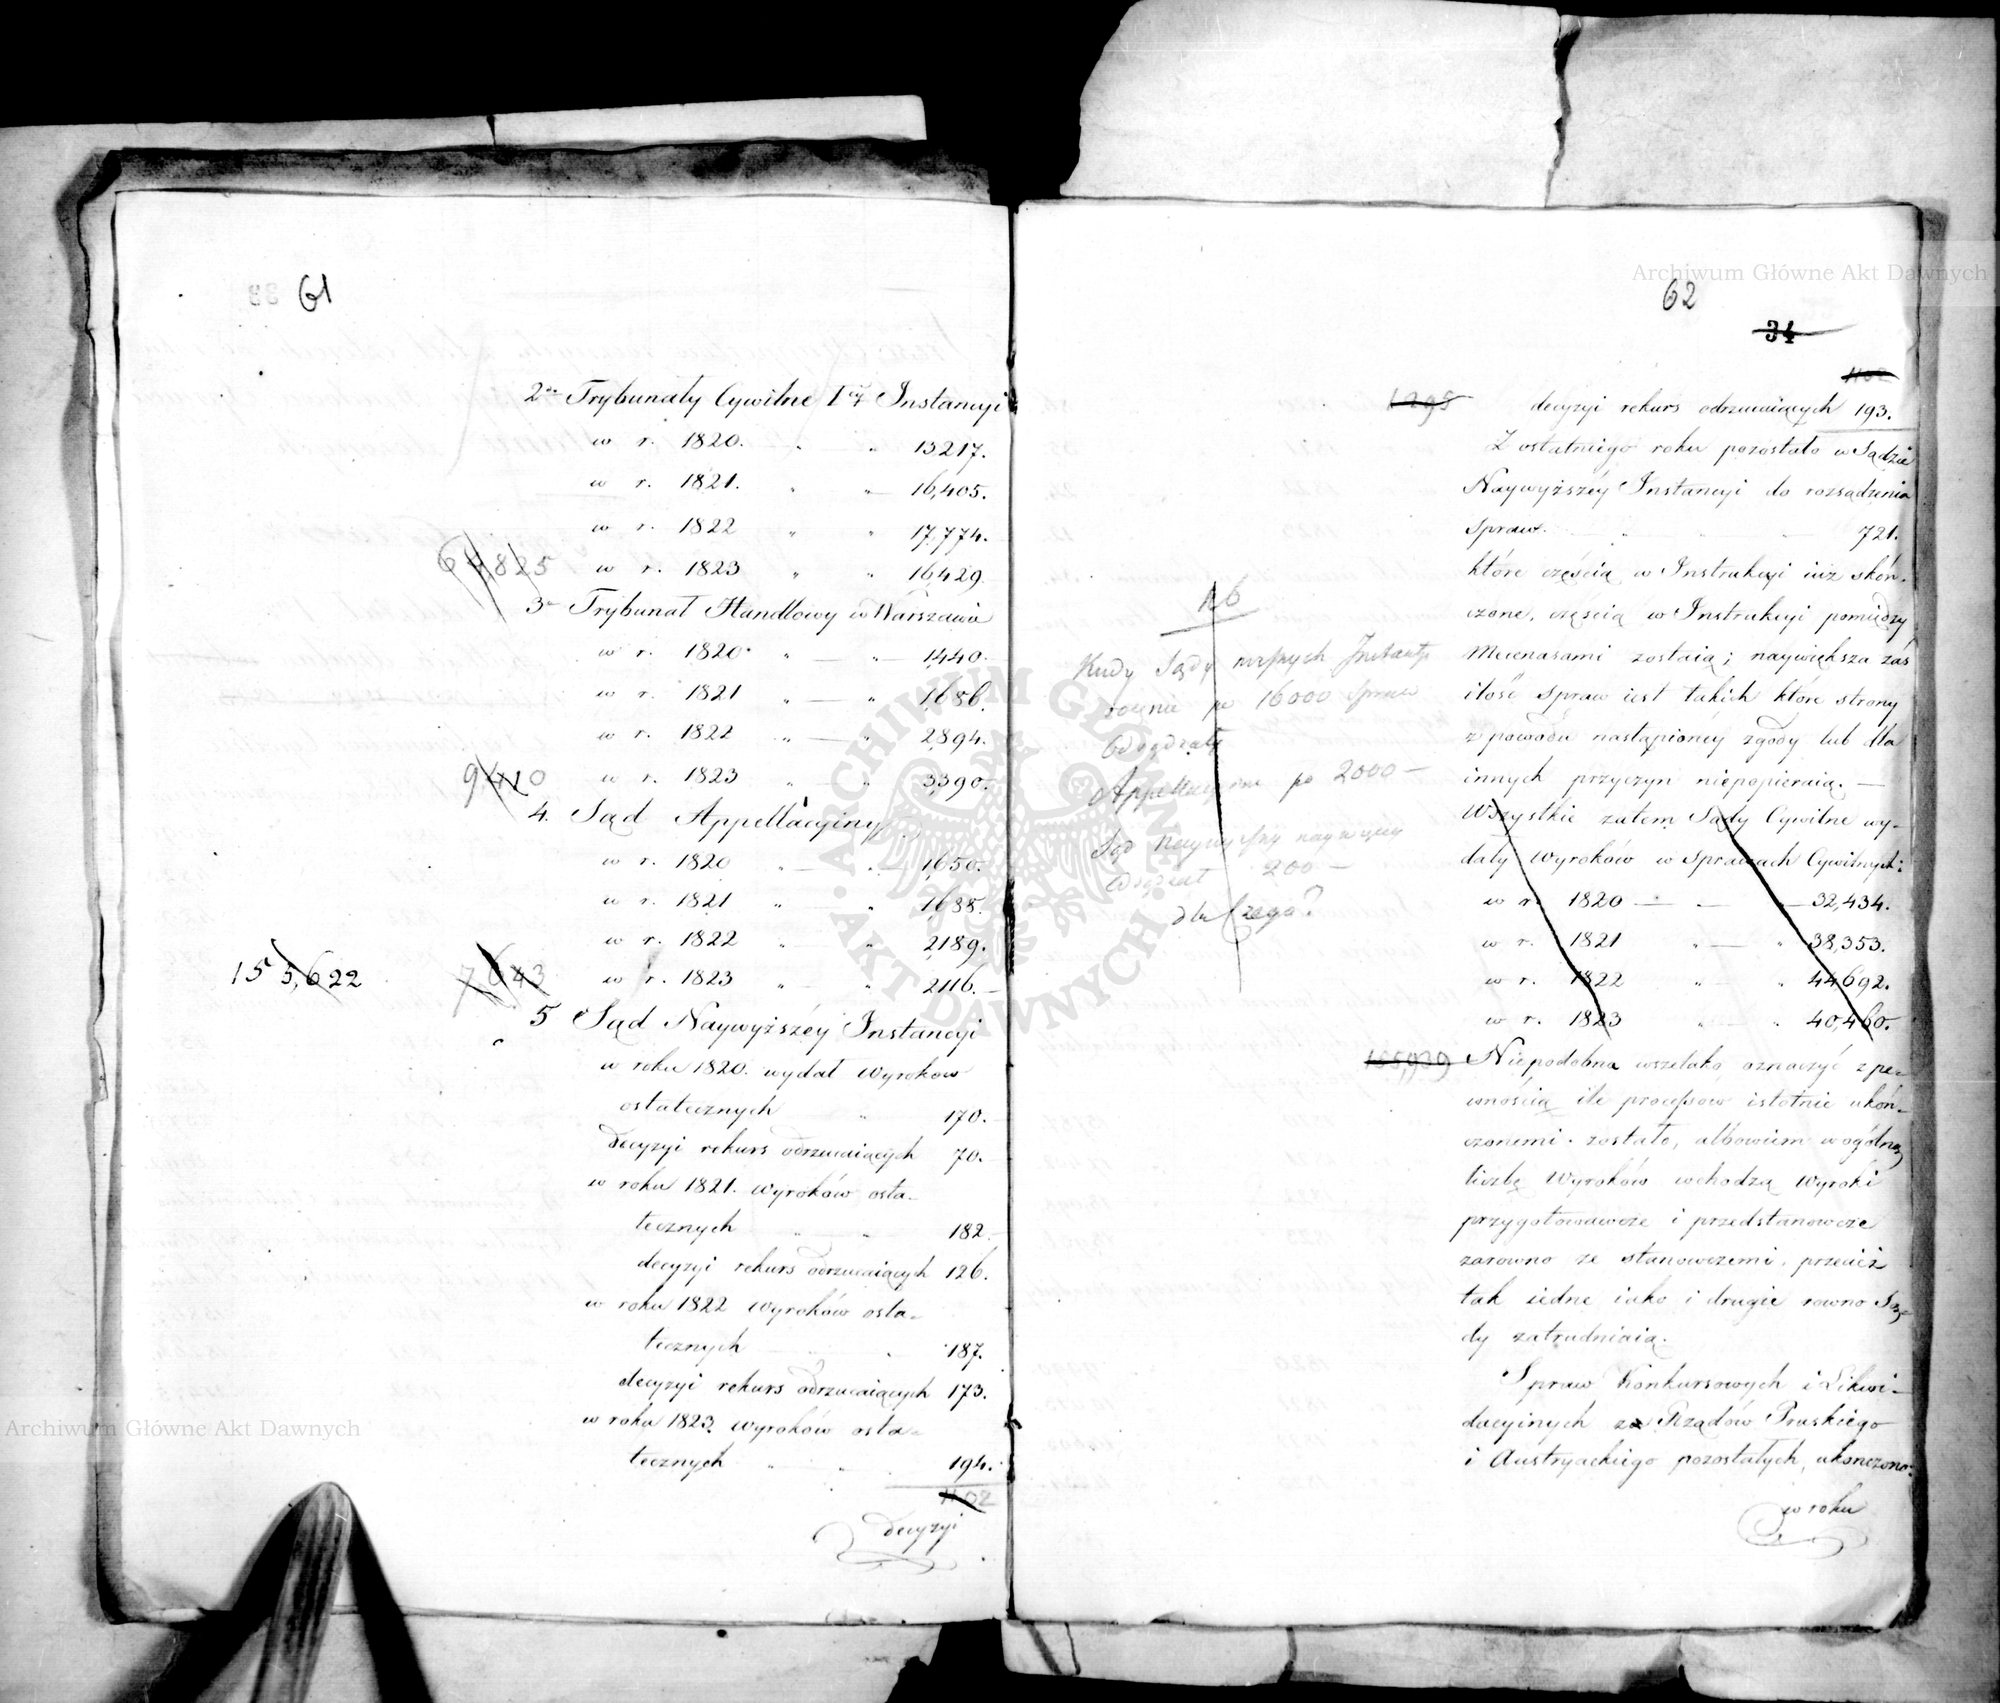 61
2re Trybunały Cywilne 1éy Instancyi
w r. 1820. " — " 13217.
w r. 1821. " — 16,405.
w r. 1822 " " 17,774.
w r. 1823 " " 16,429.
3e Trybunał Handlowy w Warszawie
w r. 1820. " — " 1440.
w r. 1821 " — " 1,686.
w r. 1822 " — " 2894.
9,410 w r. 1823 " — " 3390.
4. Sąd Appellacyiny
w r. 1820 " — " 1,650.
w r. 1821 " " 1,688.
w r. 1822 " " 2189.
155,622 7,643 w r. 1823 " — " 2116.
5 Sąd Naywyższéy Instancyi
w roku 1820. wydał Wyroków
ostatecznych " 170.
decyzyi rekurs odrzucaiących 70.
w roku 1821. wyroków osta-
tecznych " " 182.
decyzyi rekurs odrzucaiących 126.
w roku 1822 Wyroków osta-
tecznych — " 187.
decyzyi rekurs odrzucaiących 173.
w roku 1823. Wyroków osta-
tecznych " " 194.
1102
decyzyi
62
34
1102
1298 decyzyi rekurs odrzucaiących 193.
Z ostatniego roku pozostało w Sądzie
Naywyższéy Instancyi do rozsądzenia
Spraw. — " — 721.
które częścią w Instrukcyi iuż skoń-
czone, częścią w Instrukcyi pomiędzy
Mecenasami zostaią; naywiększa zaś
ilość Spraw iest takich które strony
z powodu nastąpionéy zgody lub dla
innych przyczyn niepopieraią. —
Wszystkie zatem Sądy Cywilne wy-
dały Wyroków w Sprawach Cywilnych:
w r. 1820 — — 32,434.
w r. 1821 " — " 38,353.
w r. 1822 " " 44692.
w r. 1823 " — " 40,460.
Niepodobna wszelako oznaczyć z pe-
wnością ile processów istotnie ukoń-
czonemi zostało, albowiem w ogólną
liczbę Wyroków wchodzą Wyroki
przygotowawcze i przedstanowcze
zarówno ze stanowczemi, przecież
tak iedne iako i drugie rowno Są-
dy zatrudniaią.
Spraw Konkursowych i Likwi-
dacyinych za Rządów Pruskiego
i Austryackiego pozostałych, ukończono:
w roku
Kiedy Sądy niższych Instancyi
rocznie po 16000 Spraw
Odsądzały
Appellacyine po 2000 —
200 —
dla Czego?
ARCHIWUM GŁÓWNE AKT DAWNYCH
Archiwum Główne Akt Dawnych
Archiwum Główne Akt Dawnych